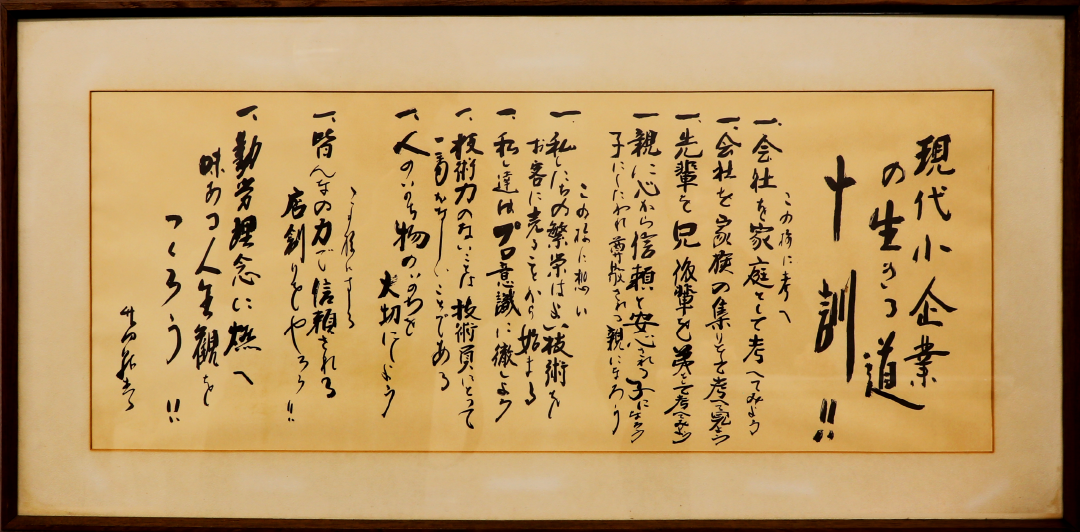 現代小企業
の生きる道
十訓!!
この様に考へ
一、会社を家庭として考へてみよう
一、会社を家族の集りとして考へて見よう
一、先輩を兄後輩を弟として考へてみよう
一、親に心から信頼と安心される子になろう
子にしたわれ尊敬される親になろう
この様に想い
一、私たちの繁栄はよい技術を
お客に売ることから始まる
一、私達はプロ意識に徹しよう
一、技術力のないことは技術員にとって
一番かなしいことである
一、人のいのち物のいのちを
大切にしよう
一、皆んなの力で信頼される
店創りをしやろう!!
一、勤労理念に燃へ
味ある人生観を
つくろう!!